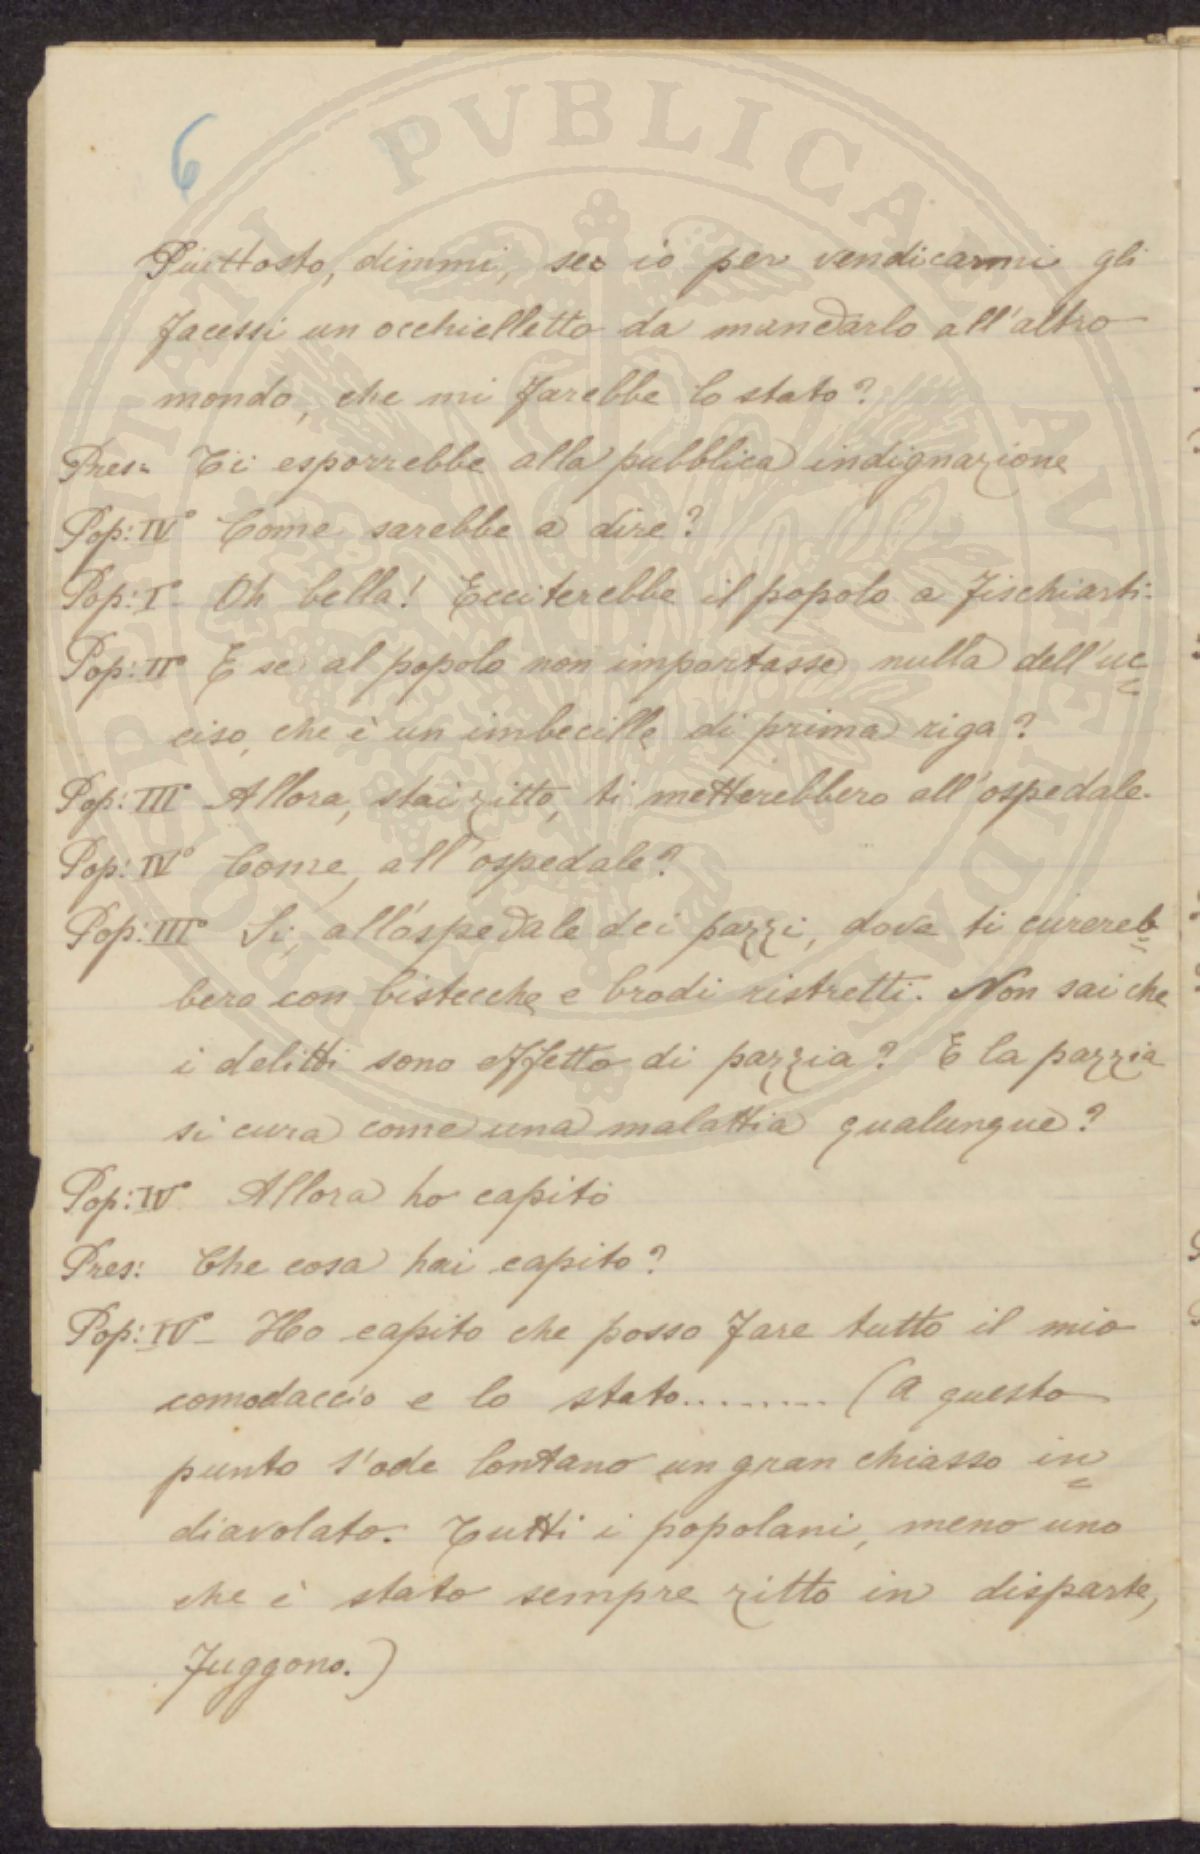 6
Piuttosto, dimmi, se io per vendicarmi gli
facessi un occhielletto da mandarlo all'altro
mondo, che mi farebbe lo stato?
Pres: Ti esporrebbe alla pubblica indignazione
Pop: IV° Come sarebbe a dire?
Pop: I° Oh bella! Ecciterebbe il popolo a fischiarti.
Pop: II° E se al popolo non importasse nulla dell'uc=
ciso, che è un imbecille di prima riga?
Pop: III° Allora, stai zitto, ti metterebbero all'ospedale.
Pop: IV° Come, all'ospedale?
Pop: III° Si, all'ospedale dei pazzi, dove ti curereb=
bero con bistecche e brodi ristretti. Non sai che
i delitti sono effetto di pazzia? E la pazzia
si cura come una malattia qualunque?
Pop: IV° Allora ho capito
Pres: Che cosa hai capito?
Pop: IV° - Ho capito che posso fare tutto il mio
comodaccio e lo stato......... (A questo
punto s'ode lontano un gran chiasso in=
diavolato. Tutti i popolani, meno uno
che è stato sempre zitto in disparte,
fuggono.)
PIETATI PVBLICAE AVGENDAE